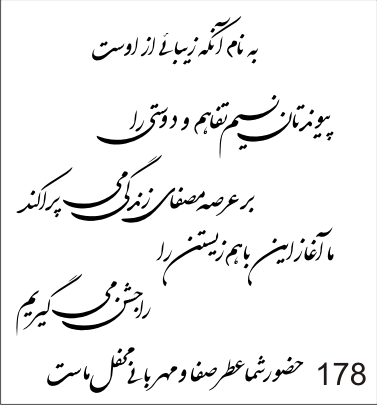 به نام آنکه زیبائے از اوست
پیوندتان نسیم تفاهم و دوستی را
بر عرصه مصفای زندگی می پراکند
ما آغاز این باهم زیستن را
را جشن می گیریم
حضور شما عطر صفا و مهربانے محفل ماست 178